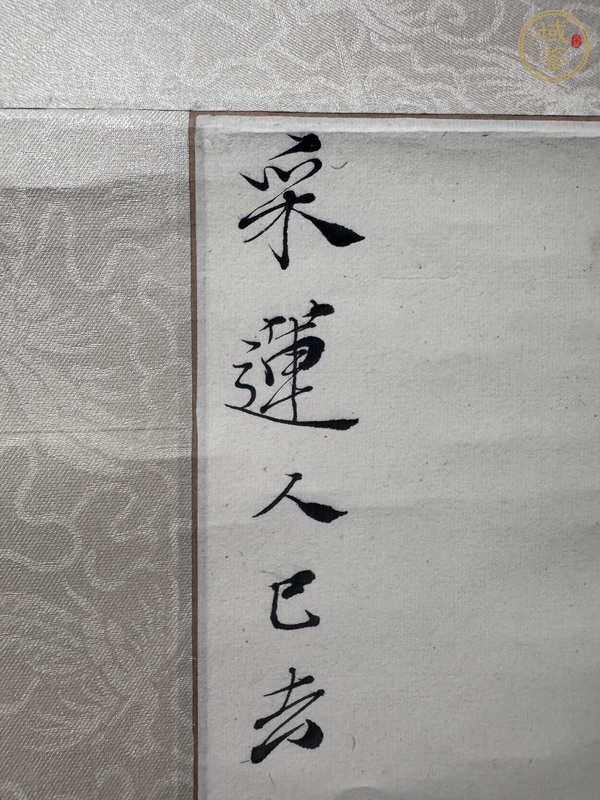 采蓮人已去